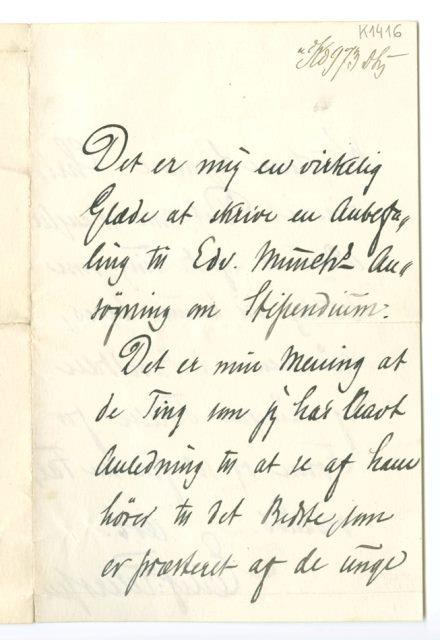 K1416
Det er mig en virkelig
Glæde at skrive en Anbefa„
ling til Edv. Munchs An„
søgning om Stipendium.
Det er min Mening at
de Ting som jeg har havt
Anledning til at se af ham
hører til det Bedste, som
er præsteret af de unge